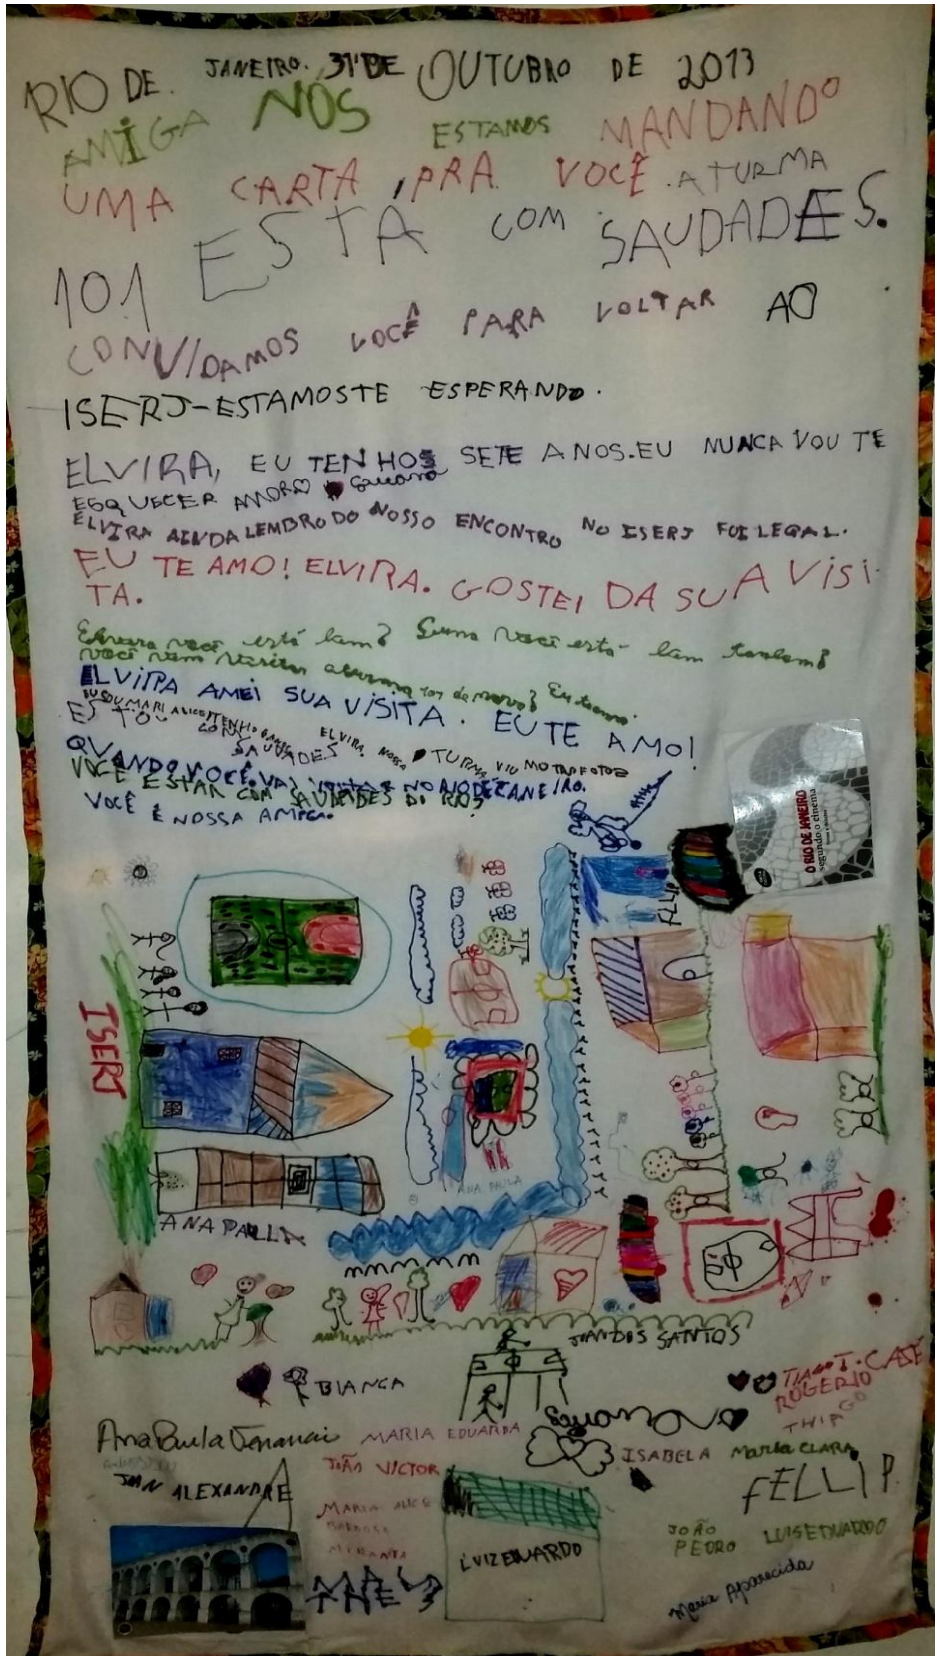 RIO DE JANEIRO. 31 DE OUTUBRO DE 2013
AMIGA NÓS ESTAMOS MANDANDO
UMA CARTA, PRA VOCÊ. A TURMA
101 ESTÁ COM SAUDADES.
CONVIDAMOS VOCÊ PARA VOLTAR AO
ISERJ-ESTAMOSTE ESPERANDO.
ELVIRA, EU TENHO SETE ANOS. EU NUNCA VOU TE
ESQUECER AMORO
ELVIRA AINDA LEMBRO DO NOSSO ENCONTRO NO ISERJ FOI LEGAL.
EU TE AMO! ELVIRA. GOSTEI DA SUA VISI-
TA.
você está bem? você está bem também?
você vem visitar a turma 101 de novo? Eu te amo.
ELVIRA AMEI SUA VISITA. EU TE AMO!
EU SOU MARIA ALICE TENHO
ESTOU COM SAUDADES ELVIRA, NOSSA TURMA VIU
QUANDO VOCÊ VAI NO RIO DE JANEIRO.
VOCÊ ESTAR COM SAUDADES DO RIO?
VOCÊ É NOSSA AMIGA.
O RIO DE JANEIRO
segundo o cinema
FLLIP
ISERJ
ANA PAULA
ANA PAULA
JOAN DOS SANTOS
BIANCA
TIAGO T. CASÉ
ROGERIO
THIAGO
Ana Paula
MARIA EDUARDA
ISABELA
MARIA CLARA
JOÃO VICTOR
JOAN ALEXANDRE
FELLIP
MARIA ALICE
BARBOSA
MIRANDA
LUIZ EDUARDO
JOÃO
PEDRO
LUIS EDUARDO
Maria Aparecida